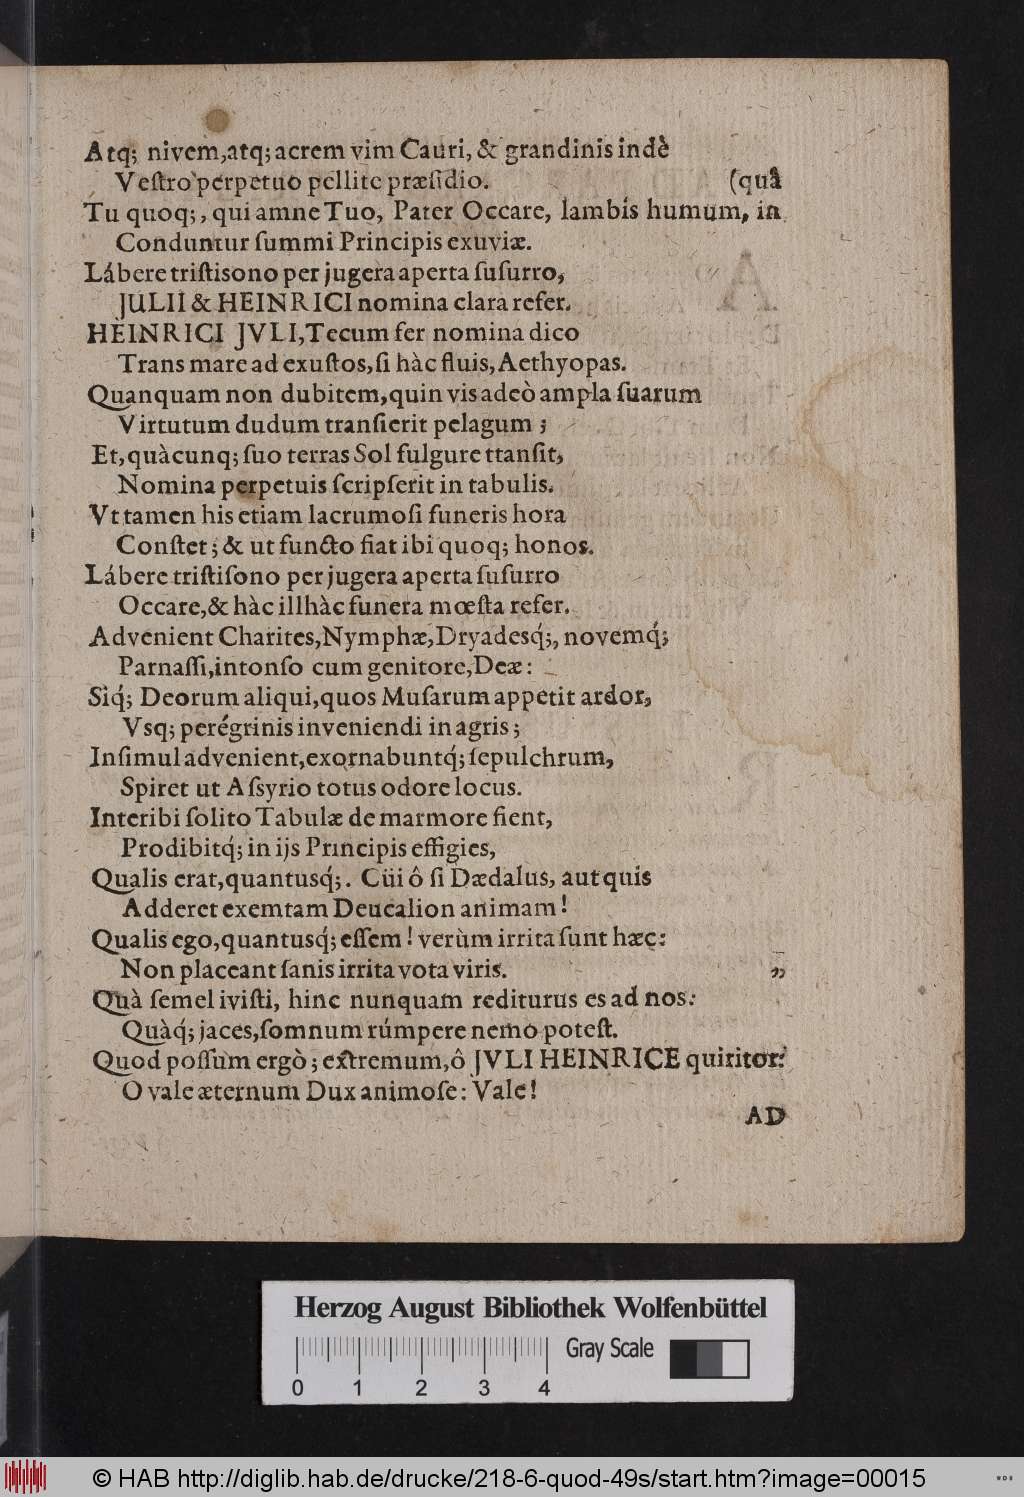 Atq; nivem,atq; acrem vim Cauri, & grandinis indè
Veſtro perpetuo pellite præſidio. (quâ
Tu quoq;, qui amne Tuo, Pater Occare, lambis humum, in
Conduntur ſummi Principis exuviæ.
Lábere triſtisono per jugera aperta ſuſurro,
JULII & HEINRICI nomina clara refer.
HEINRICI JVLI,Tecum fer nomina dico
Trans mare ad exuſtos,ſi hàc fluis,Aethyopas.
Quanquam non dubitem,quin vis adeò ampla ſuarum
Virtutum dudum tranſierit pelagum ;
Et,quàcunq; ſuo terras Sol fulgure ttanſit,
Nomina perpetuis ſcripſerit in tabulis.
Vt tamen his etiam lacrumoſi funeris hora
Conſtet ; & ut functo fiat ibi quoq; honos.
Lábere triſtiſono per jugera aperta ſuſurro
Occare,& hàc illhàc funera mœſta refer.
Advenient Charites,Nymphæ,Dryadesq́;, novemq́;
Parnaſſi,intonſo cum genitore,Deæ :
Sìq́; Deorum aliqui,quos Muſarum appetit ardor,
Vsq; perégrinis inveniendi in agris ;
Inſimul advenient,exornabuntq́; ſepulchrum,
Spiret ut Aſsyrio totus odore locus.
Interibi ſolito Tabulæ de marmore fient,
Prodibitq́; in ijs Principis effigies,
Qualis erat,quantusq́;. Cüi ô ſi Dædalus, aut quis
Adderet exemtam Deucalion animam !
Qualis ego,quantusq́; eſſem ! verùm irrita ſunt hæc :
Non placeant ſanis irrita vota viris. „
Quà ſemel iviſti, hinc nunquam rediturus es ad nos :
Quàq́; jaces,ſomnum rúmpere nemo poteſt.
Quod poſſum ergò ; extremum,ô JVLI HEINRICE quiritor:
O vale æternum Dux animoſe : Vale !
AD
Herzog August Bibliothek Wolfenbüttel
Gray Scale
0 1 2 3 4
© HAB http://diglib.hab.de/drucke/218-6-quod-49s/start.htm?image=00015